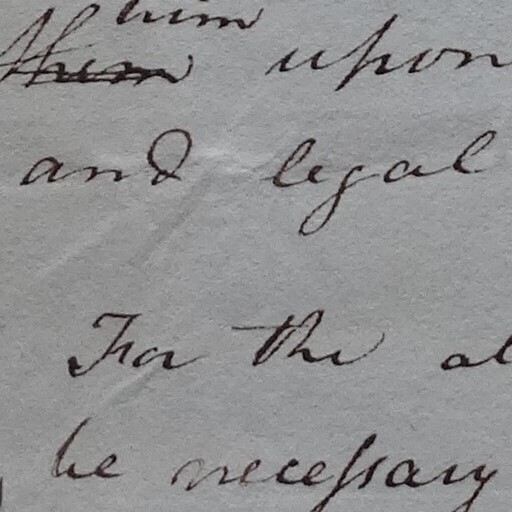 him
them upon
and legal
For the
be necessary